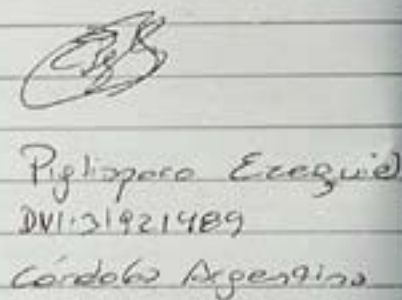 Pigliapoco Ezequiel
DNI: 31921489
Córdoba Argentina